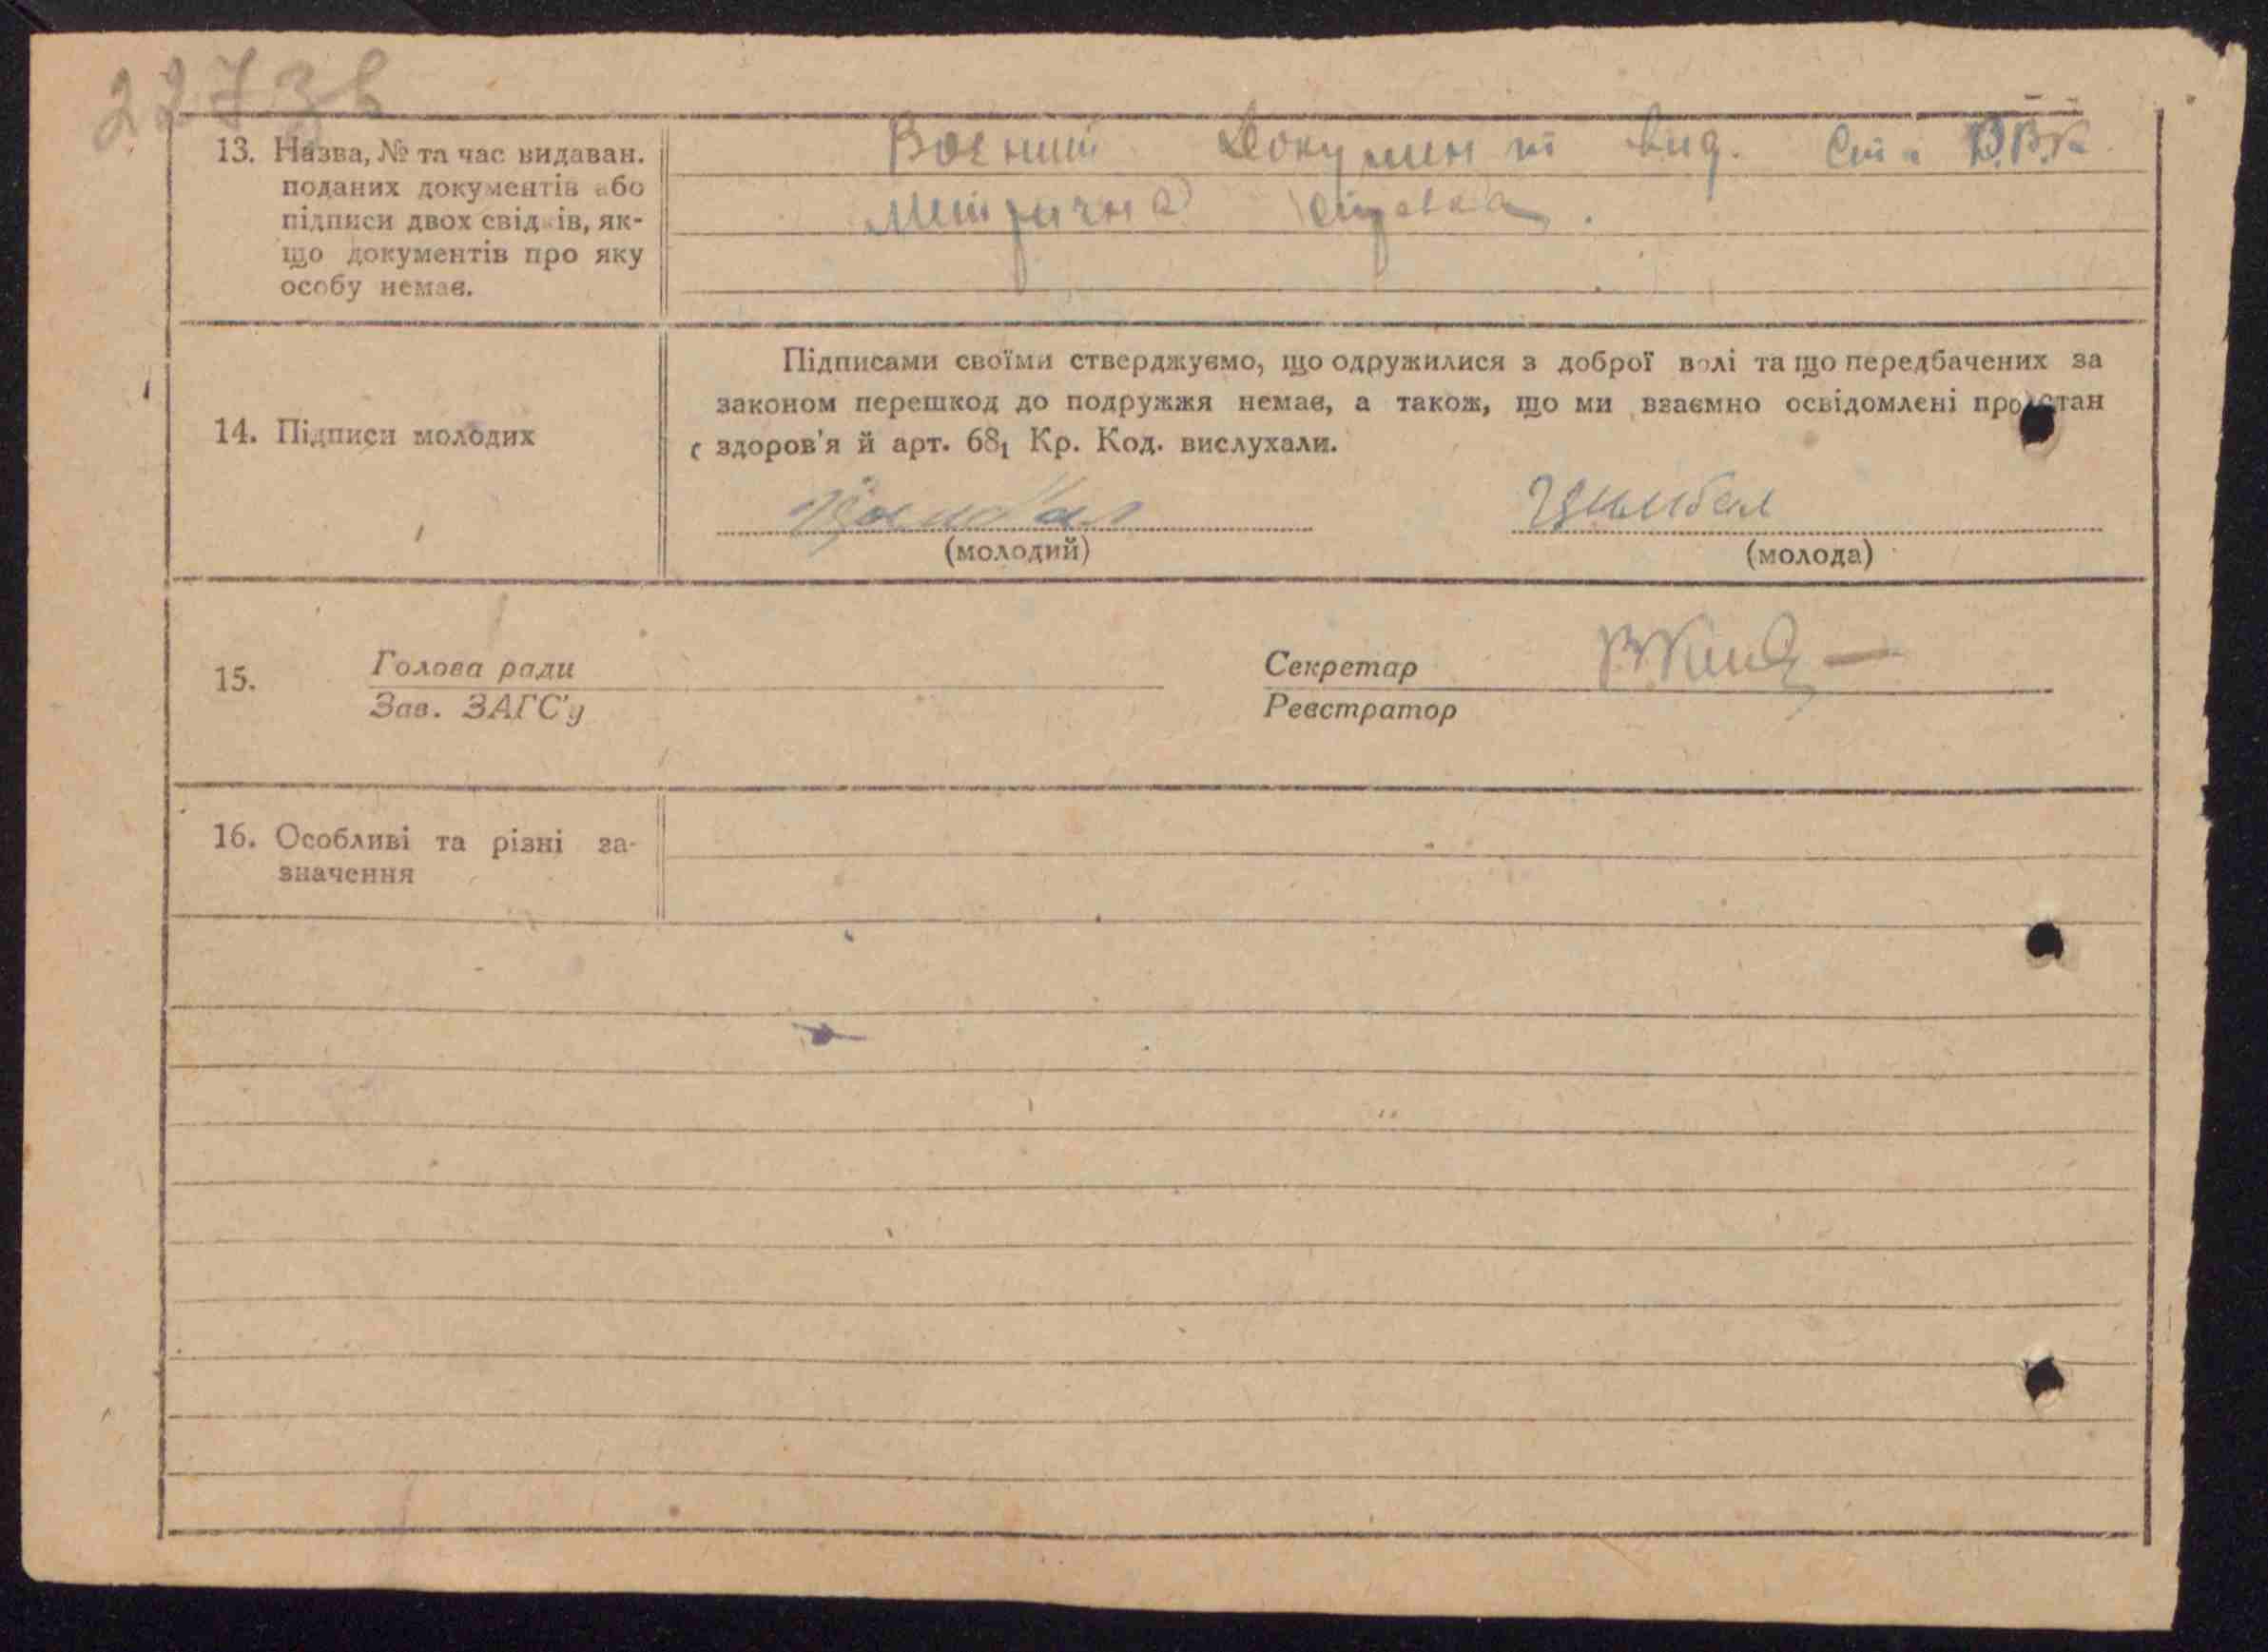 227зв
13. Назва, № та час видаван. поданих документів або підписи двох свідків, якщо документів про яку особу немає.
Воєний Документ вид. Ст. Р.В.К.
Метрична справка.
14. Підписи молодих
Підписами своїми стверджуємо, що одружилися з доброї волі та що передбачених за
законом перешкод до подружжя немає, а також, що ми взаємно освідомлені про стан
здоров'я й арт. 68₁ Кр. Код. вислухали.
Цимбал
Цимбал
(молодий)
(молода)
15.
Голова ради
Зав. ЗАГС'у
Секретар
Реєстратор
16. Особливі та різні за-
значення